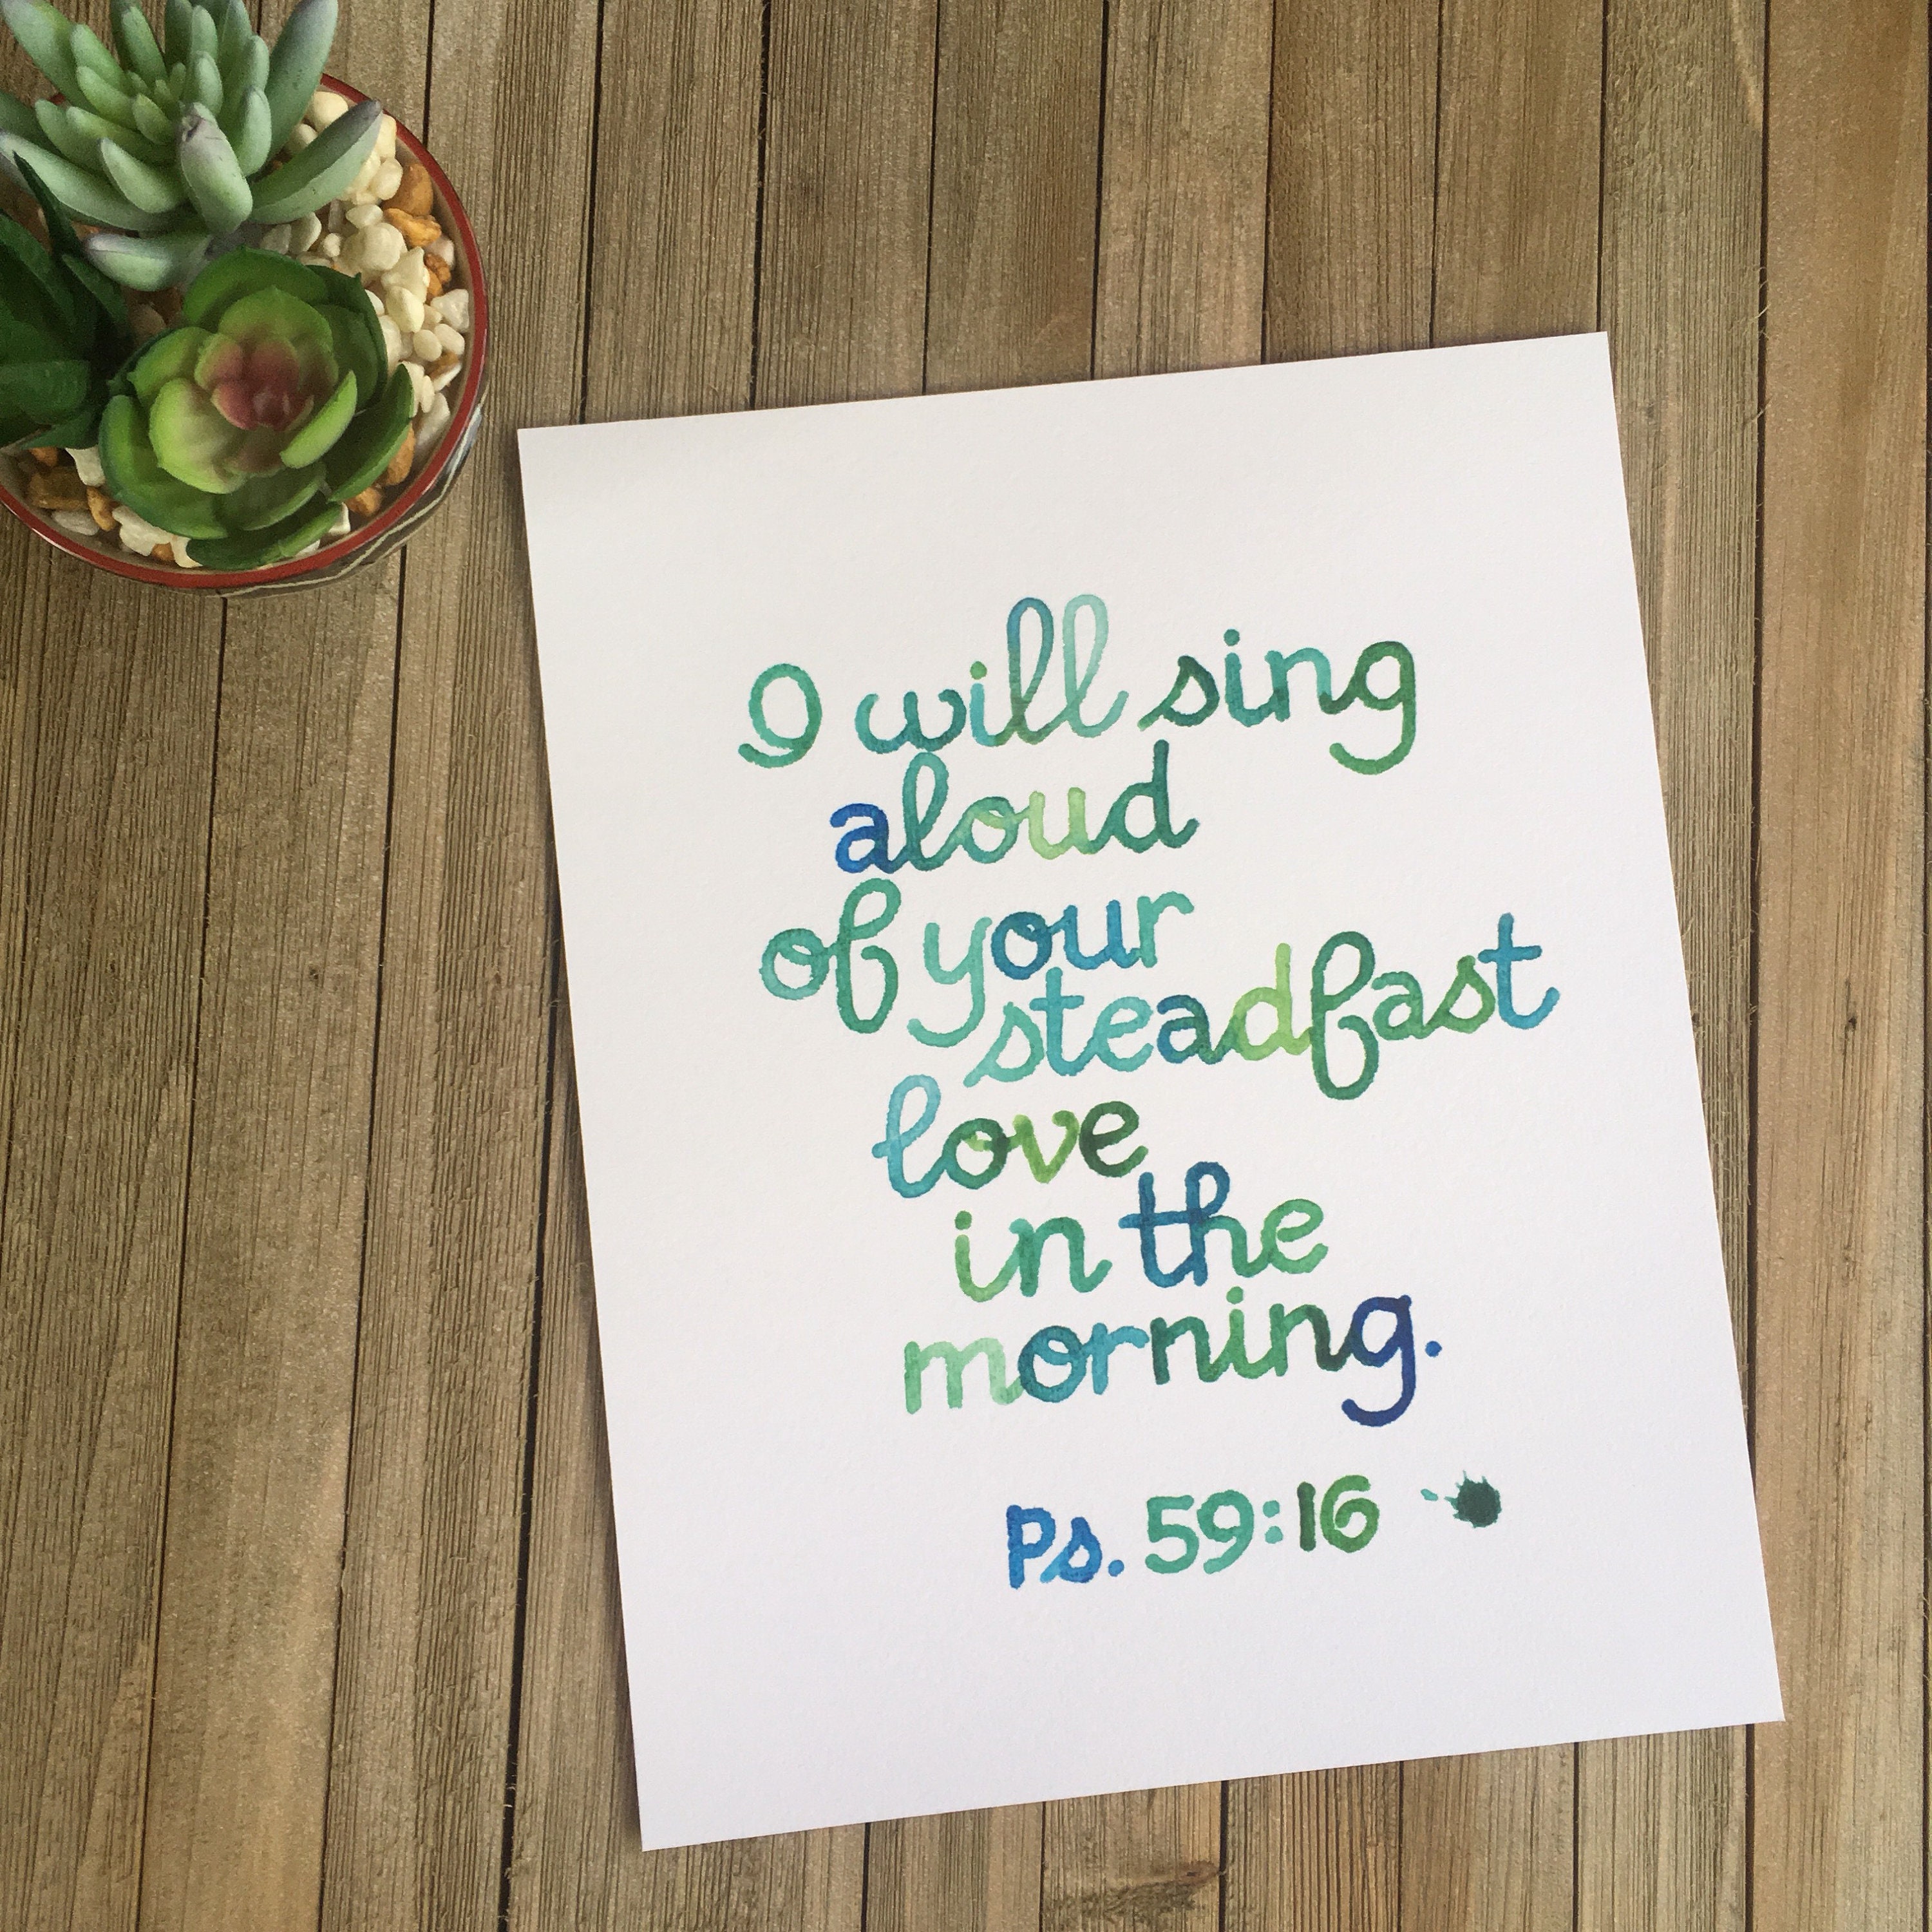 I will sing
aloud
of your
steadfast
love
in the
morning.
Ps. 59:16